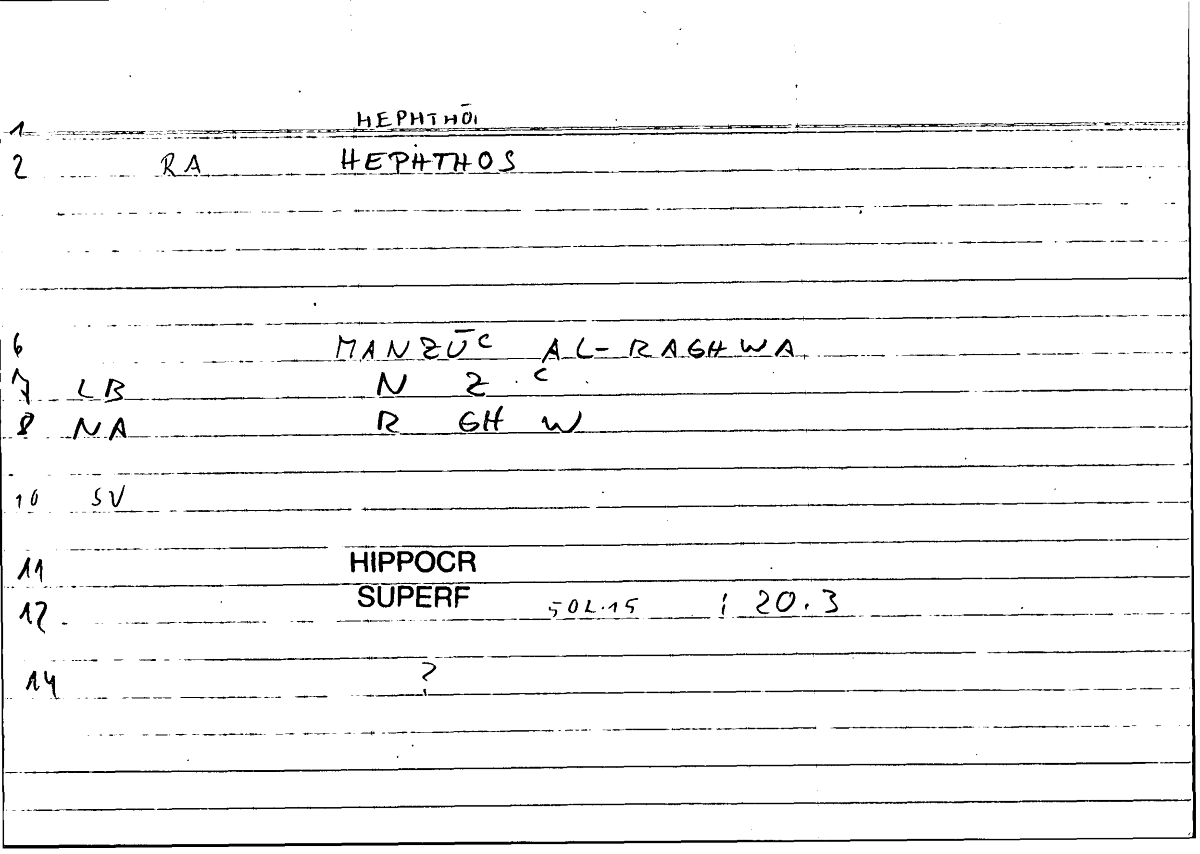 1 HEPHTHŌI
2 RA HEPHTHOS
6 MANZŪC AL-RAGHWA
7 LB N Z C
8 NA R GH W
10 SV
11 HIPPOCR
12 SUPERF 502.15 ; 20.3
14 ?